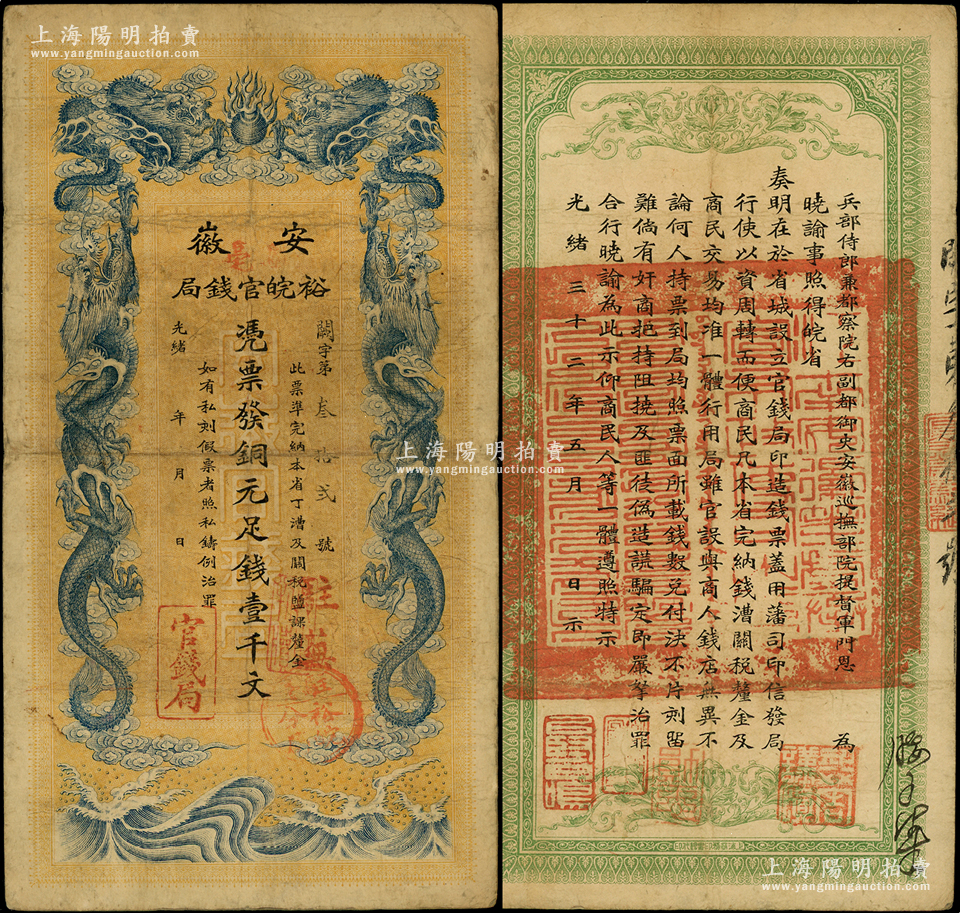 上海陽明拍賣
www.yangmingauction.com
安徽
裕皖官錢局
闕字第叁拾弍號
此票準完納本省丁漕及關稅鹽課釐金
憑票發銅元足錢壹千文
如有私刻假票者照私鑄例治罪
光緒 年 月 日
官錢局
註蕪
兵部侍郎兼都察院右副都御史安徽巡撫部院提督軍門恩 為
曉諭事照得皖省
奏明在於省城設立官錢局印造錢票蓋用藩司印信發局
行使以資周轉而便商民凡本省完納錢漕關稅釐金及
商民交易均准一體行用局雖官設與商人錢店無異不
論何人持票到局均照票面所載錢數兌付決不片刻留
難倘有奸商把持阻撓及匪徒偽造謊騙定即嚴拏治罪
合行曉諭為此示仰商民人等一體遵照特示
光緒三十二年五月 日示
上海陽明拍賣
www.yangmingauction.com
上海陽明拍賣
www.yangmingauction.com